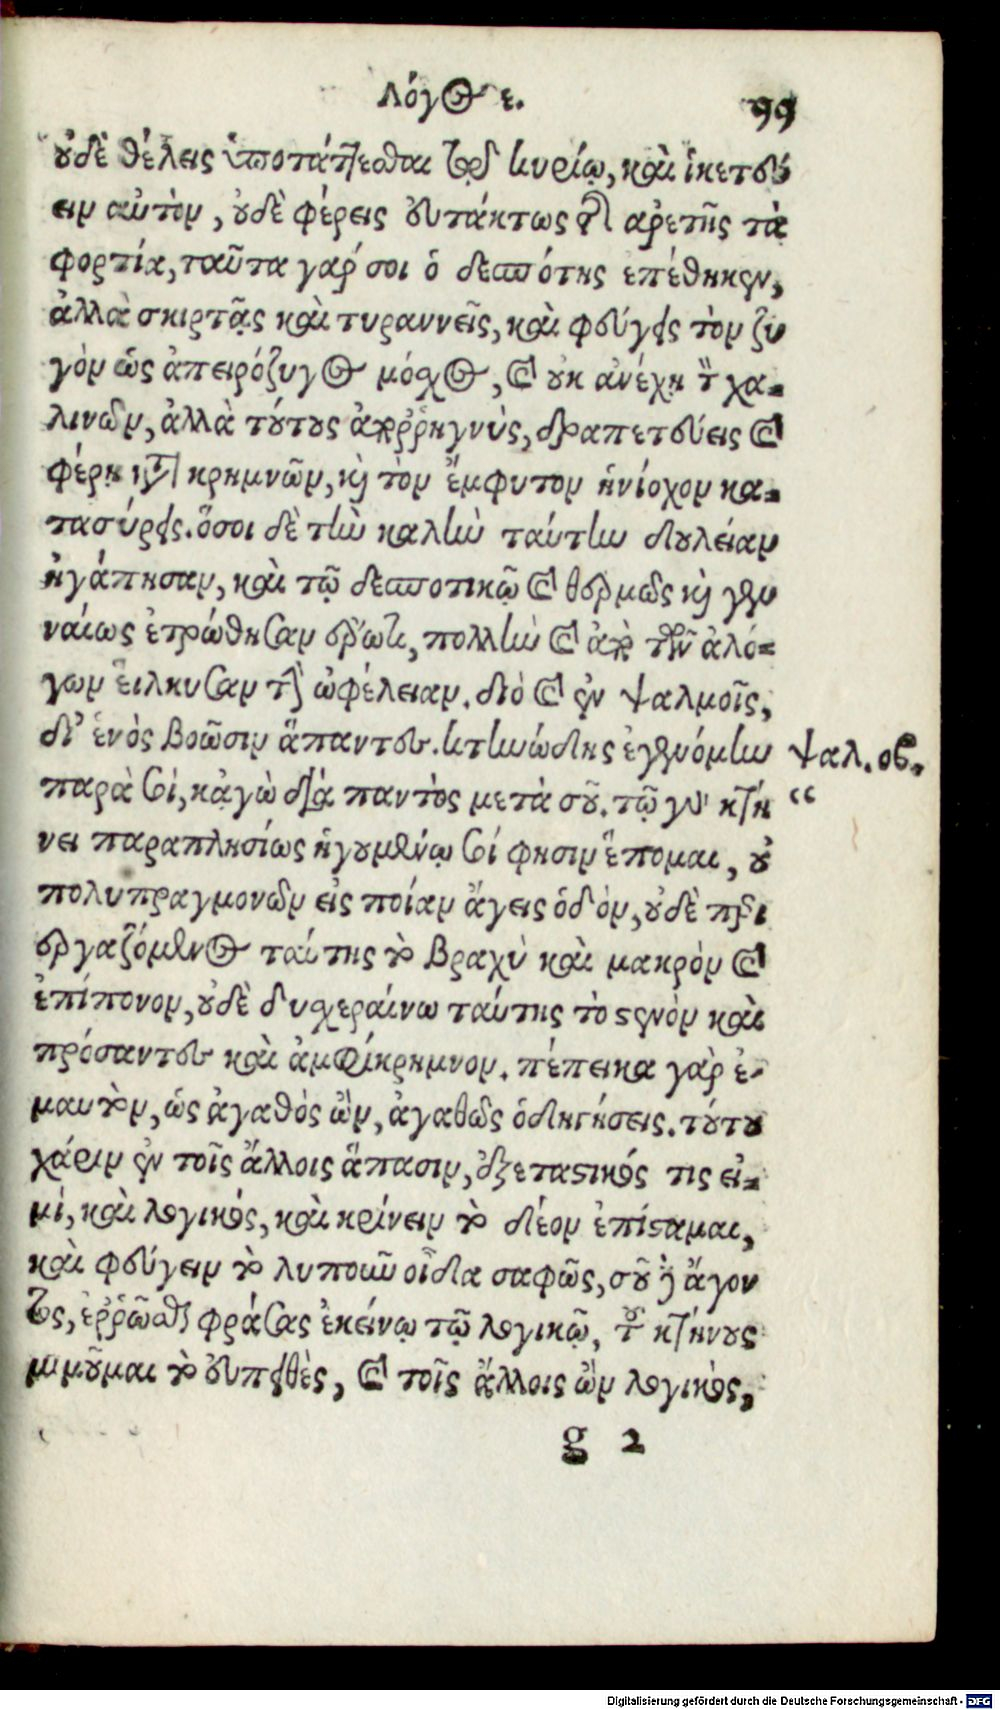 Λόγος ε. 99
οὐδὲ θέλεις ὑποτάττεσθαι τῷ κυρίῳ, καὶ ἱκετεύ
ειν αὐτὸν, οὐδὲ φέρεις εὐτάκτως τῆς ἀρετῆς τὰ
φορτία, ταῦτα γάρ σοι ὁ δεσπότης ἐπέθηκεν,
ἀλλὰ σκιρτᾷς καὶ τυραννεῖς, καὶ φεύγεις τὸν ζυ
γὸν ὡς ἀπειρόζυγος μόσχος, καὶ οὐκ ἀνέχῃ τῶν χα-
λινῶν, ἀλλὰ τούτους ἀπορρηγνὺς, δραπετεύεις καὶ
φέρῃ κατὰ κρημνῶν, καὶ τὸν ἔμφυτον ἡνίοχον κα-
τασύρεις. ὅσοι δὲ τὴν καλὴν ταύτην δουλείαν
ἠγάπησαν, καὶ τῷ δεσποτικῷ καὶ θερμῶς καὶ γεν
ναίως ἐτρώθησαν ἔρωτι, πολλὴν καὶ ἀπὸ τῶν ἀλό-
γων εἵλκυσαν τὴν ὠφέλειαν. διὸ καὶ ἐν ψαλμοῖς,
δι' ἑνὸς βοῶσιν ἅπαντες. κτηνώδης ἐγενόμην
ψαλ. οβ.
παρὰ σοί, κἀγὼ διὰ παντὸς μετὰ σοῦ. τῷ γὰρ κτή
“
νει παραπλησίως ἡγουμένῳ σοί φησιν ἕπομαι, οὐ
πολυπραγμονῶν εἰς ποίαν ἄγεις ὁδὸν, οὐδὲ περι
εργαζόμενος ταύτης τὸ βραχὺ καὶ μακρὸν καὶ
ἐπίπονον, οὐδὲ δυσχεραίνω ταύτης τὸ στενὸν καὶ
πρόσαντες καὶ ἀμφίκρημνον. πέπεικα γὰρ ἐ-
μαυτὸν, ὡς ἀγαθὸς ὢν, ἀγαθῶς ὁδηγήσεις. τούτου
χάριν ἐν τοῖς ἄλλοις ἅπασιν, ἐξεταστικός τις εἰ-
μὶ, καὶ λογικός, καὶ κρίνειν τὸ δέον ἐπίσταμαι,
καὶ φεύγειν τὸ λυποῦν οἶδα σαφῶς, σοῦ δὲ ἄγον
τος, ἐρρῶσθαι φράσας ἐκείνῳ τῷ λογικῷ, τοῦ κτήνους
μιμοῦμαι τὸ εὐπειθὲς, καὶ τοῖς ἄλλοις ὢν λογικὸς,
g 2
Digitalisierung gefördert durch die Deutsche Forschungsgemeinschaft - DFG